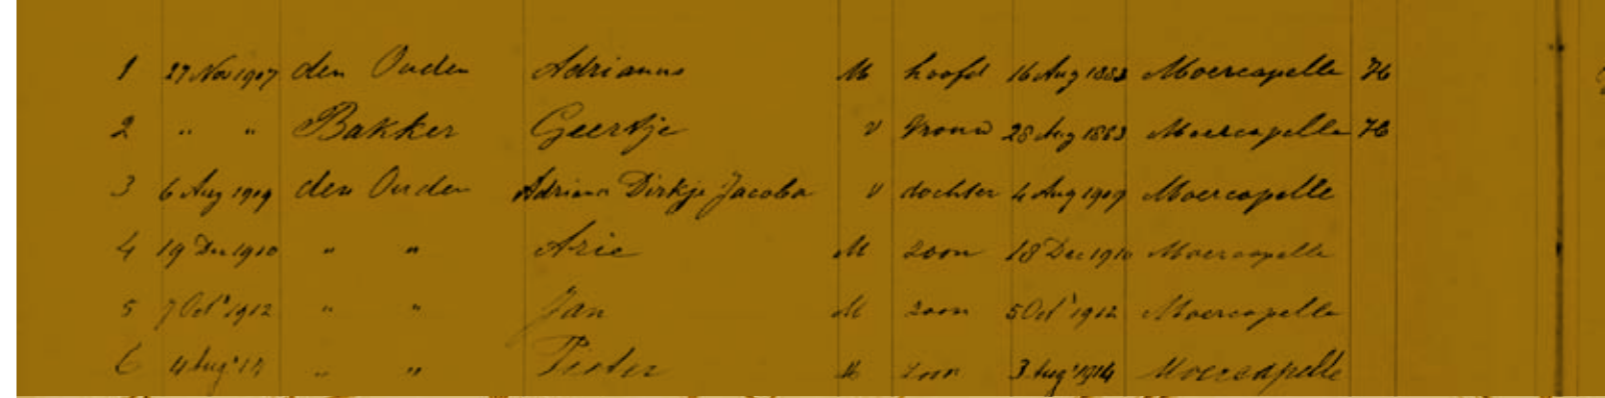 1 27 Nov 1907 den Ouden Adrianus M hoofd 16 Aug 1883 Moercapelle H
2 " " Bakker Geertje V Vrouw 28 Aug 1883 Moercapelle H
3 6 Aug 1909 den Ouden Adriana Dirkje Jacoba V dochter 4 Aug 1909 Moercapelle
4 19 Dec 1910 " " Arie M zoon 18 Dec 1910 Moercapelle
5 7 Oct 1912 " " Jan M zoon 5 Oct 1912 Moercapelle
6 4 Aug " " Pieter M zoon 3 Aug 1914 Moercapelle